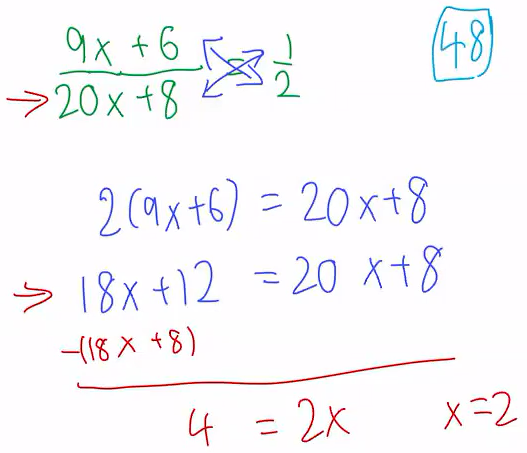 9x + 6
48
20x + 8 = 1/2
2(9x+6) = 20x+8
18x+12 = 20x+8
-(18x +8)
4 = 2x x=2